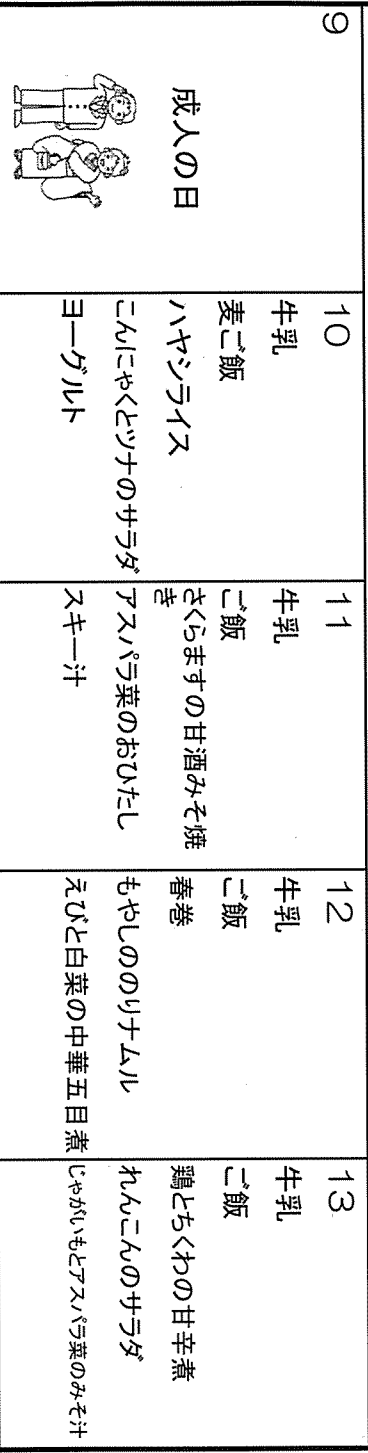 9
成人の日
10
牛乳
麦ご飯
ハヤシライス
こんにゃくとツナのサラダ
ヨーグルト
11
牛乳
ご飯
さくらますの甘酒みそ焼
き
アスパラ菜のおひたし
スキー汁
12
牛乳
ご飯
春巻
もやしののりナムル
えびと白菜の中華五目煮
13
牛乳
ご飯
鶏とちくわの甘辛煮
れんこんのサラダ
じゃがいもとアスパラ菜のみそ汁